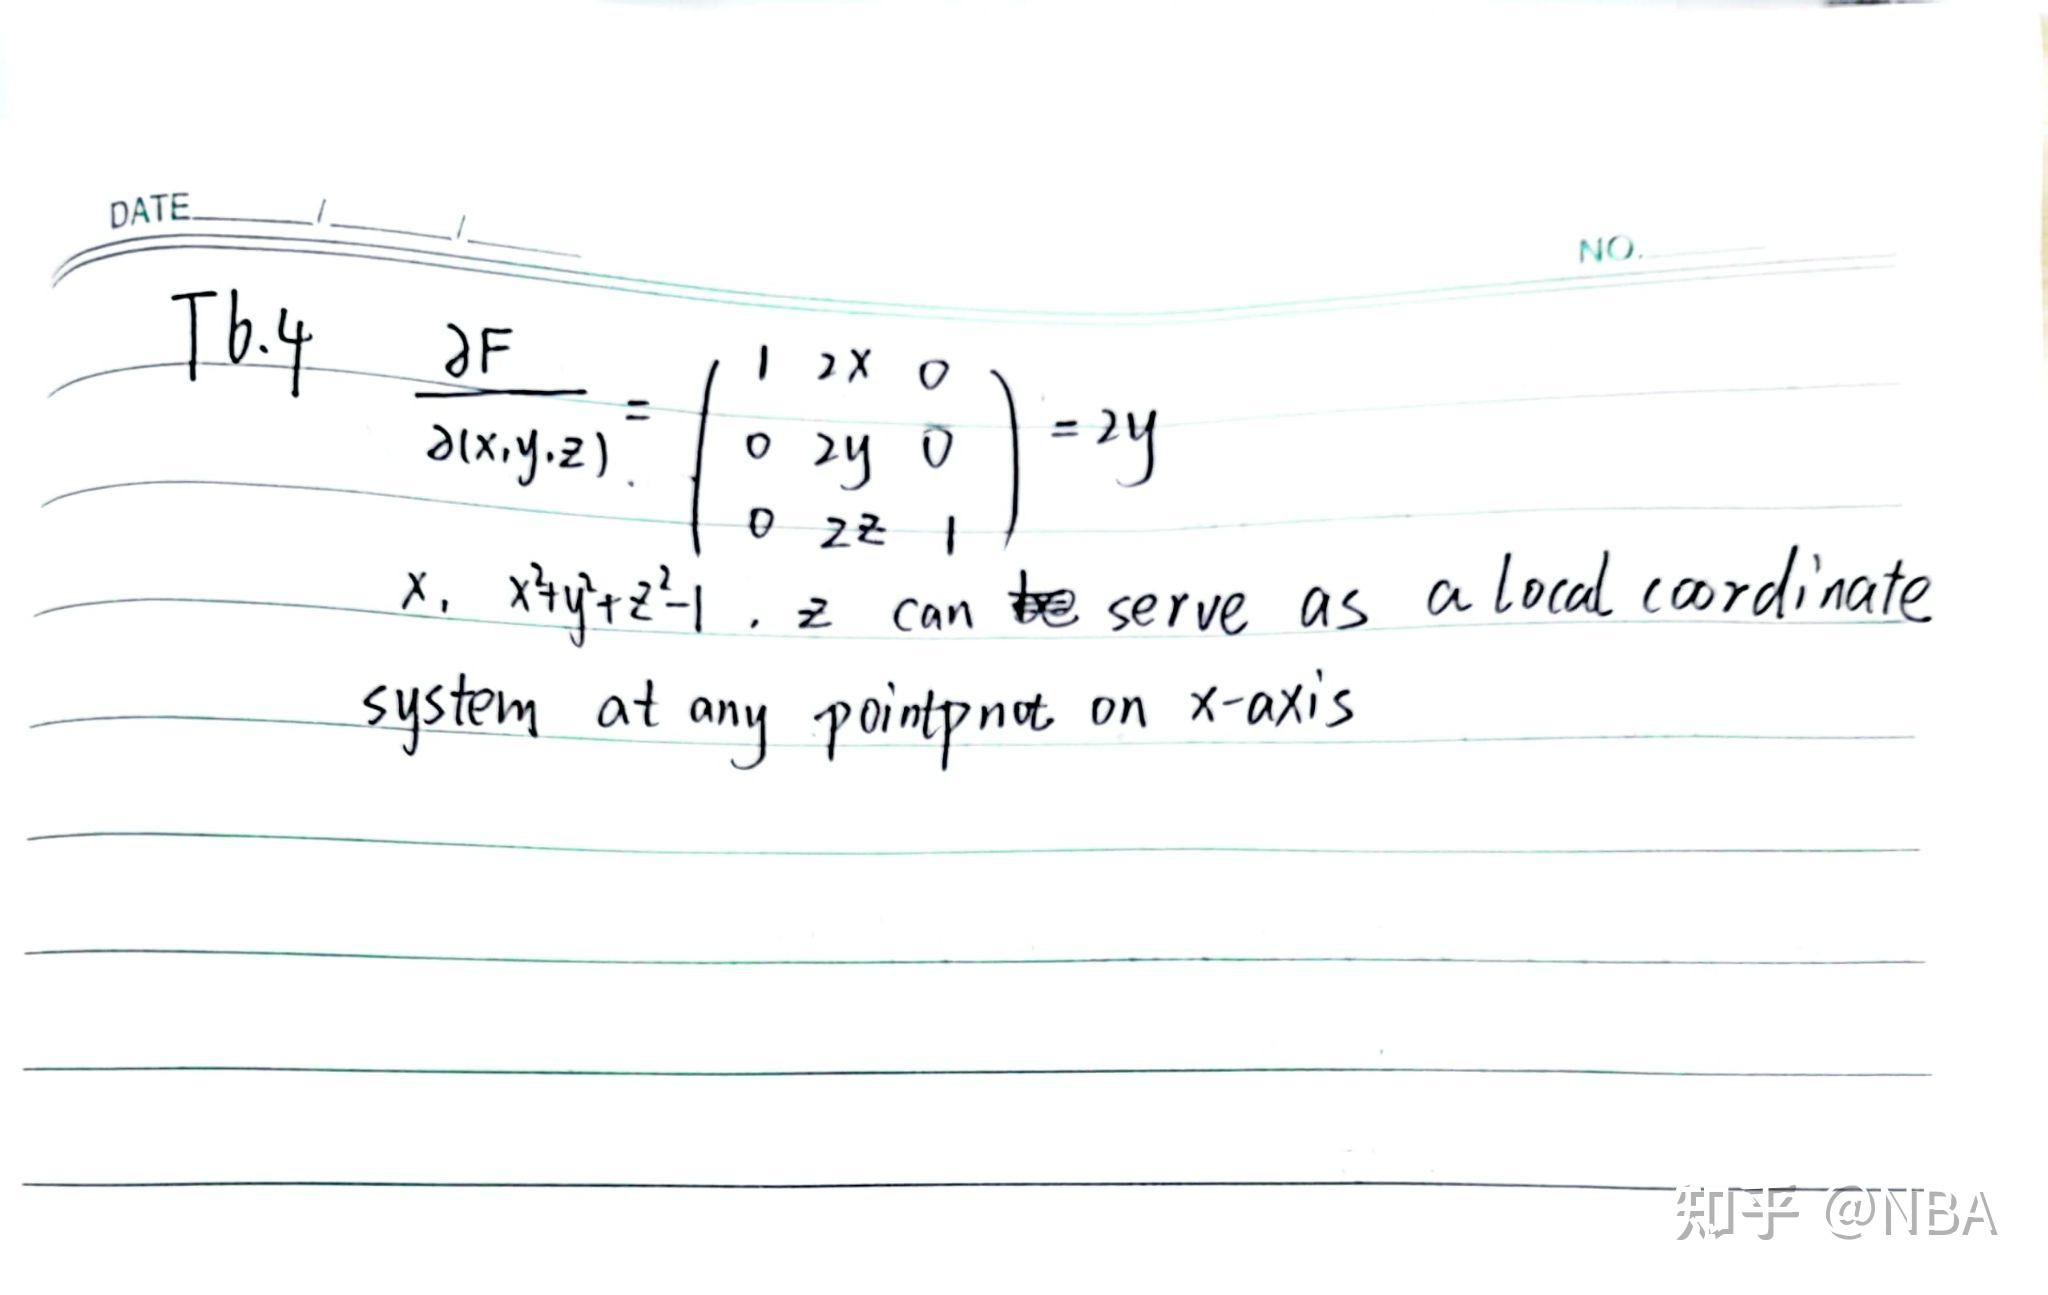 DATE / /
NO.
T6.4 ∂F/∂(x,y,z) = ( 1 2x 0
0 2y 0
0 2z 1 ) = 2y
x, x²+y²+z²-1, z can serve as a local coordinate
system at any point p not on x-axis
知乎 @NBA